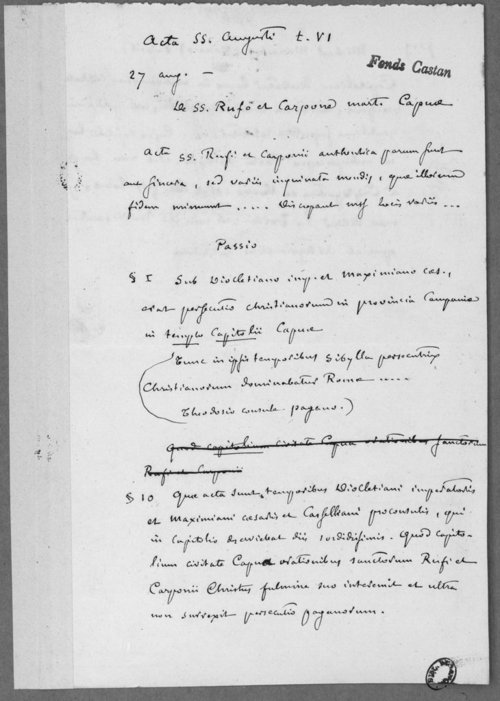 Acta SS. Augusti t. VI
Fonds Castan
27 aug. —
De SS. Rufo et Carpone mart. Capuæ
Acta SS. Rufi et Carponii authentica parum sunt
aut sincera, sed variis inquinata mendis, quæ illorum
fidem minuunt ..... Discrepant inter locis variis ...
Passio
§ I Sub Diocletiano imp. et Maximiano cæs.,
erat persecutio christianorum in provincia Campaniæ
in templo Capitolii Capuæ
(Tunc in ipsis temporibus Sibylla persecutrix
Christianorum dominabatur Romæ .....
Theodosio consule pagano.)
Quod capitolium civitate Capua orationibus sanctorum
Rufi et Carponii
§ 10 Quæ acta sunt temporibus Diocletiani imperatoris
et Maximiani cæsaris et Casselliani proconsulis, qui
in Capitolio deserviebat diis sordidissimis. Quod capito-
lium civitate Capua orationibus sanctorum Rufi et
Carponii Christus fulmine suo interemit et ultra
non surrexit persecutio paganorum.